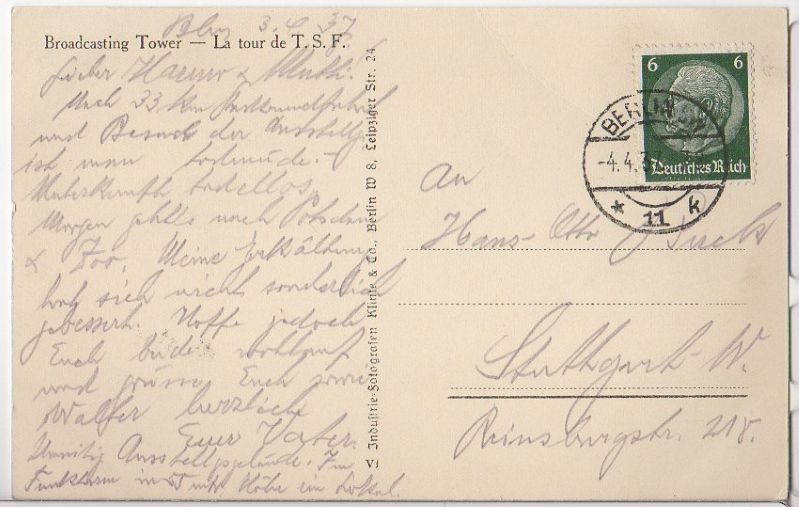 Bln 3.4.37
Broadcasting Tower — La tour de T. S. F.
Lieber Hanno & Mutti!
Nach 33 km
und Besuch der Ausstellg
ist man todmüde. –
Unterkunft tadellos.
Morgen gehts nach Potsdam
& Zoo. Meine Erkältung
hat sich nicht sonderlich
gebessert. Hoffe jedoch
Euch beide wohlauf
und grüsse Euch sowie
Walter herzlich
Euer Vater.
Ausstellgsgelände. Im
Funkturm in 55 mtr Höhe im Lokal.
VI Industrie-Fotografen Klinke & Co., Berlin W 8, Leipziger Str. 24
6 6
Deutsches Reich
BERLIN
-4.4.37
* 11 k
An
Hans-Otto
Stuttgart-W.
Reinsburgstr. 218.